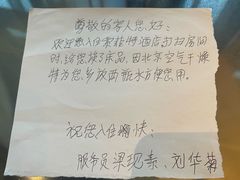 尊敬的客人您好:
欢迎您入住希尔顿酒店打扫房间
时,给您换了床品,因北京空气干燥
特为您多放两瓶水方便您用。
祝您入住愉快:
服务员 梁现素、刘华菊